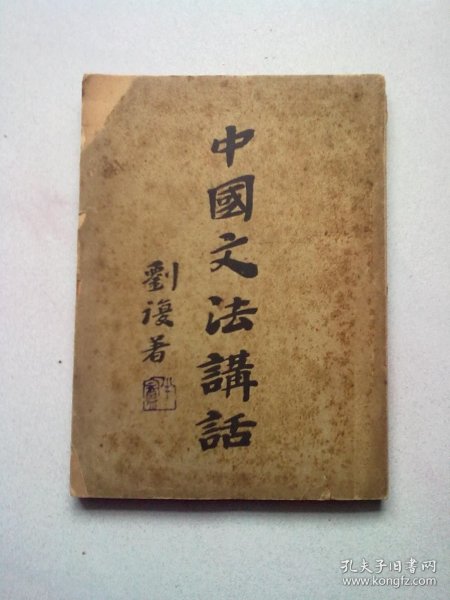 中國文法講話
劉復著
孔夫子旧书网
www.kongfz.com